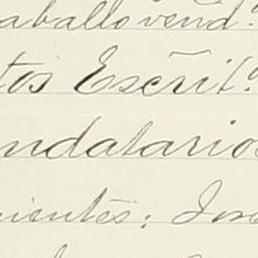 aballo vend.ª
tos Escrit.ª
ndatario
cientes; José